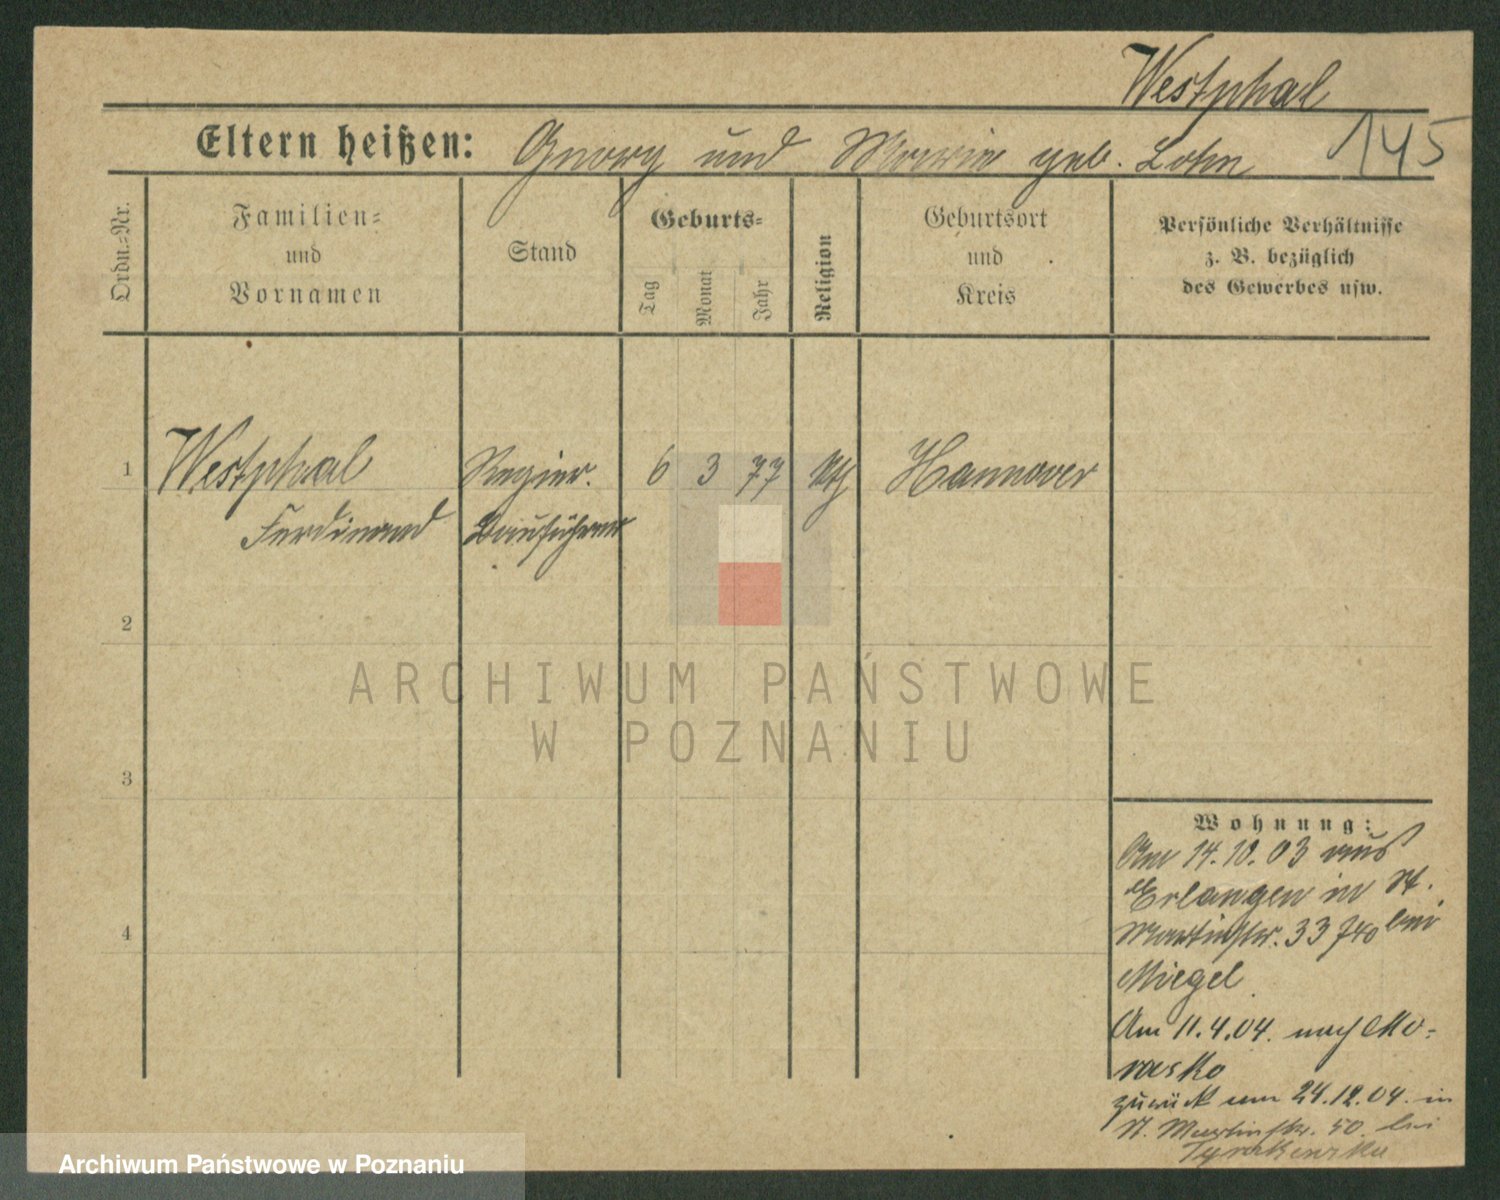 Westphal
145
Eltern heißen: Georg und Marie geb. Lohn
Ordn.=Nr.
Familien=
und
Vornamen
Stand
Geburts=
Tag
Monat
Jahr
Religion
Geburtsort
und
Kreis
Persönliche Verhältnisse
z. B. bezüglich
des Gewerbes usw.
1
Westphal
Ferdinand
Regier.
Bauführer
6 3 77
Hannover
2
3
4
ARCHIWUM PAŃSTWOWE
W POZNANIU
Wohnung:
Am 14.10.03 aus
Erlangen in St.
Martinstr. 33 bei
Miegel
Am 11.4.04. nach Mo=
rasko
zurück am 24.12.04. in
St. Martinstr. 50. bei
Archiwum Państwowe w Poznaniu